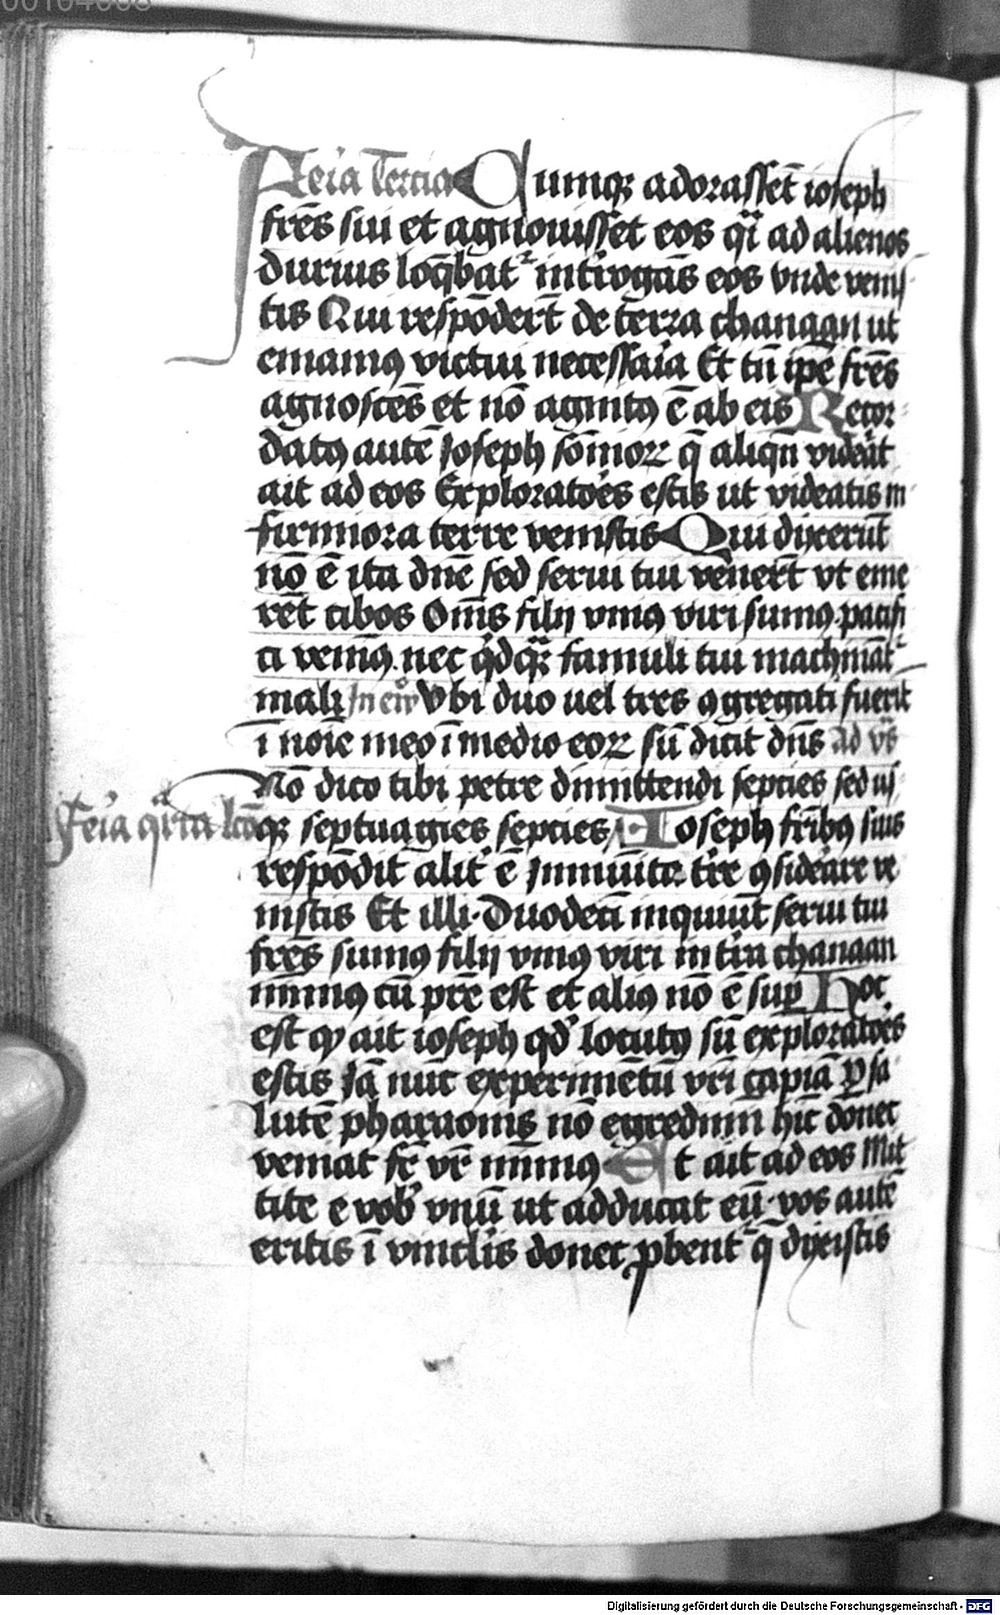 00104008
Feĩa Tercia Cumqꝫ adorasset̄ ioseph
fr̄es sui et agnouisset eos qͥ ad alienos
durius loq̄bat᷑ int̓rogās eos vnde venis
tis Qui respōder̄t de terra chanaan ut
emamꝰ victui necessaïa Et tn̄ ip̄e fr̄es
agnoscēs et nō agnitꝰ ē ab eis Recor
datꝰ autē Joseph sōnioꝝ q̄ aliqn̄ videᷓt
ait ad eos Exploratoes estis ut videatis in
firmiora terre venistis Qui dixerūt
nō ē ita dn̄e sed serui tui vener̄t vt eme
rēt cibos Om̄s filij vniꝰ viri sumꝰ pacifi
ci venimꝰ nec qͥdqͣꝫ famuli tui machinat᷑
mali In ew̄ Vbi duo uel tres ꝯgregati fuerīt
ī noīe meo ī medio eoꝝ sū dicit dn̄s ad vs̄
Nō dico tibi petre dimittendi septies sed us
Feĩa qͣrta lcō
qꝫ septuagies septies Ioseph fr̄ibꝰ suis
respōdit alit̓ ē Jmmūita tr̄e ꝯsideare ve
nistis Et illi Duodecī inquiūt serui tui
fr̄es sumꝰ filij vniꝰ viri in tr̄a chanaan
minimꝰ cū pr̄e est et aliꝰ nō ē suꝑ Hoc
est ꝙ ait ioseph qd̓ locutꝰ sū exploratoes
estis Jā nūc experimētū vr̄i capiā ꝑ sa
lutē pharaonis nō egredimī hic donec
veniat fr̄ vr̄ minimꝰ Et ait ad eos Mit
tite e vob̓ vnū ut adducat eū vos autē
eritis ī vinclis donec ꝓbent᷑ q̄ dixistis
Digitalisierung gefördert durch die Deutsche Forschungsgemeinschaft - DFG